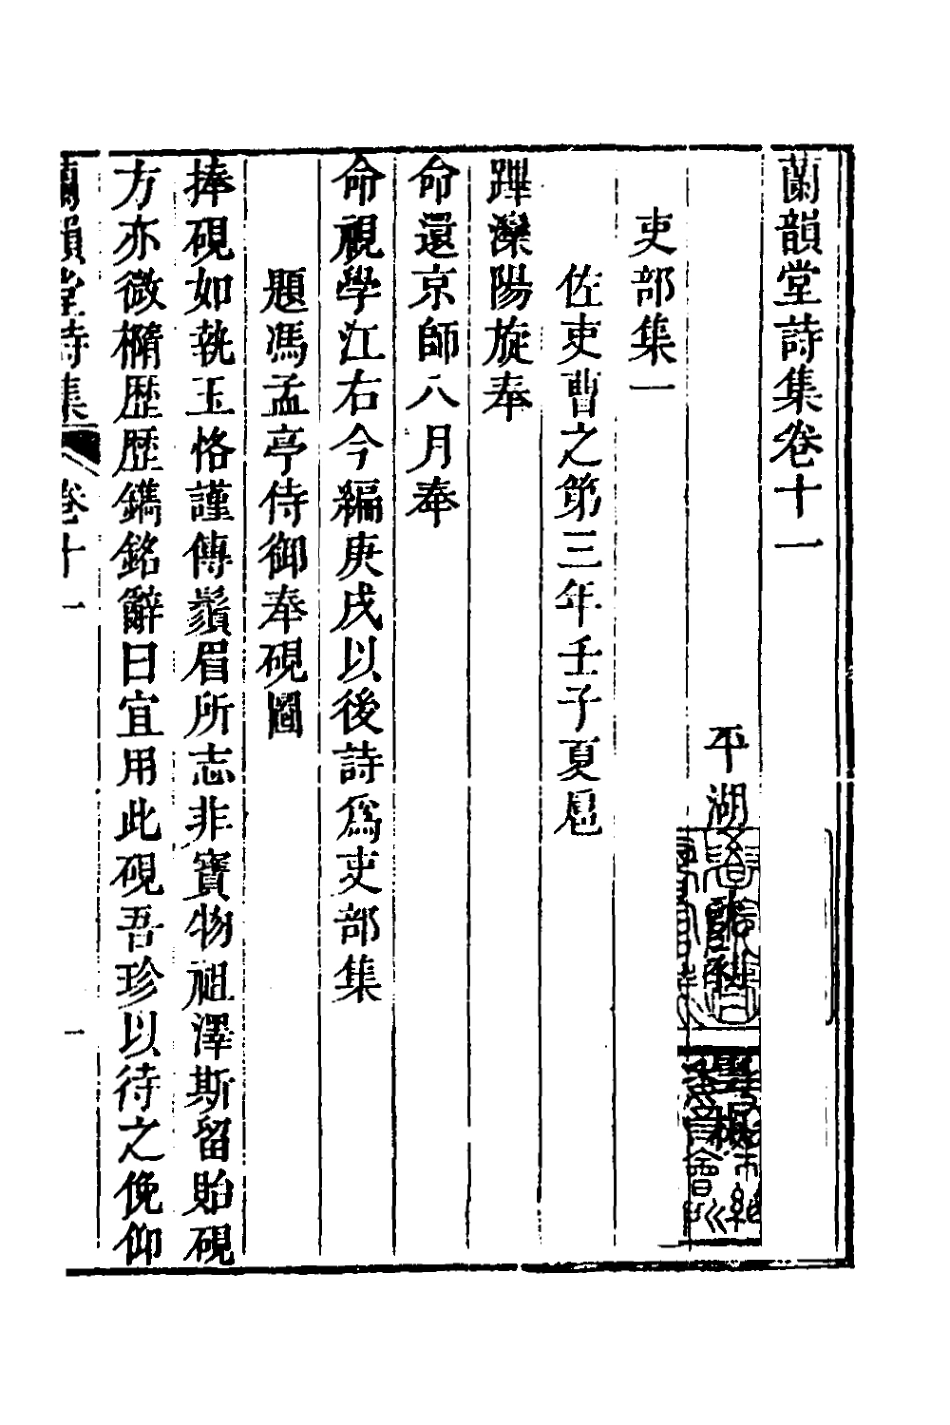 蘭韻堂詩集卷十一
平湖
吏部集一
佐吏曹之第三年壬子夏扈
蹕灤陽旋奉
命還京師八月奉
命視學江右今編庚戌以後詩為吏部集
題馮孟亭侍御奉硯圖
捧硯如執玉恪謹傳鬚眉所志非寶物祖澤斯留貽硯
方亦微橢歷歷鐫銘辭曰宜用此硯吾珍以待之俛仰
蘭韻堂詩集
卷十一
一